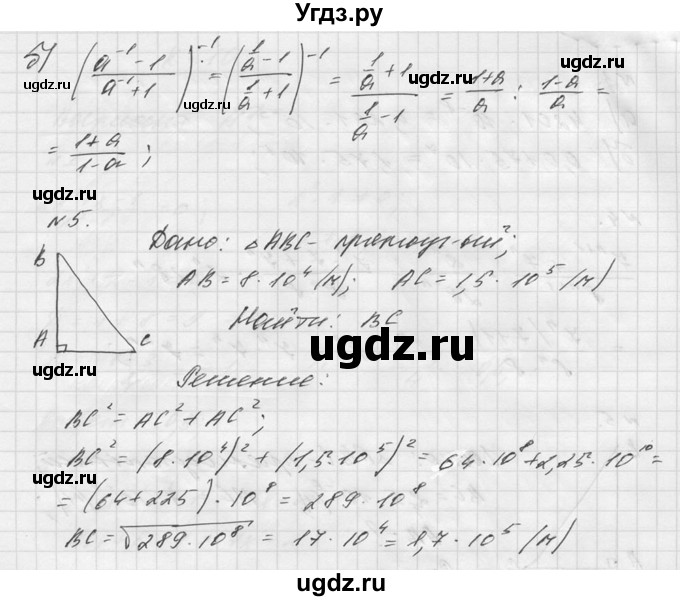 Угдз.ру
б) ((a⁻¹ - 1)/(a⁻¹ + 1))⁻¹ = ((1/a - 1)/(1/a + 1))⁻¹ = (1/a + 1)/(1/a - 1) = (1+a)/a : (1-a)/a =
ugdz.ru ugdz.ru ugdz.ru
= (1+a)/(1-a);
ugdz.ru ugdz.ru
ugdz.ru
№5.
Дано: △ABC - прямоуг-ый;
B
AB = 8·10⁴ (м); AC = 1,5·10⁵ (м)
Найти: BC
A C
ugdz.ru
ugdz.ru ugdz.ru
Решение:
BC² = AC² + AC²;
BC² = (8·10⁴)² + (1,5·10⁵)² = 64·10⁸ + 2,25·10¹⁰ =
ugdz.ru ugdz.ru
= (64+225)·10⁸ = 289·10⁸
BC = √(289·10⁸) = 17·10⁴ = 1,7·10⁵ (м)
ugdz.ru ugdz.ru
ugdz.ru